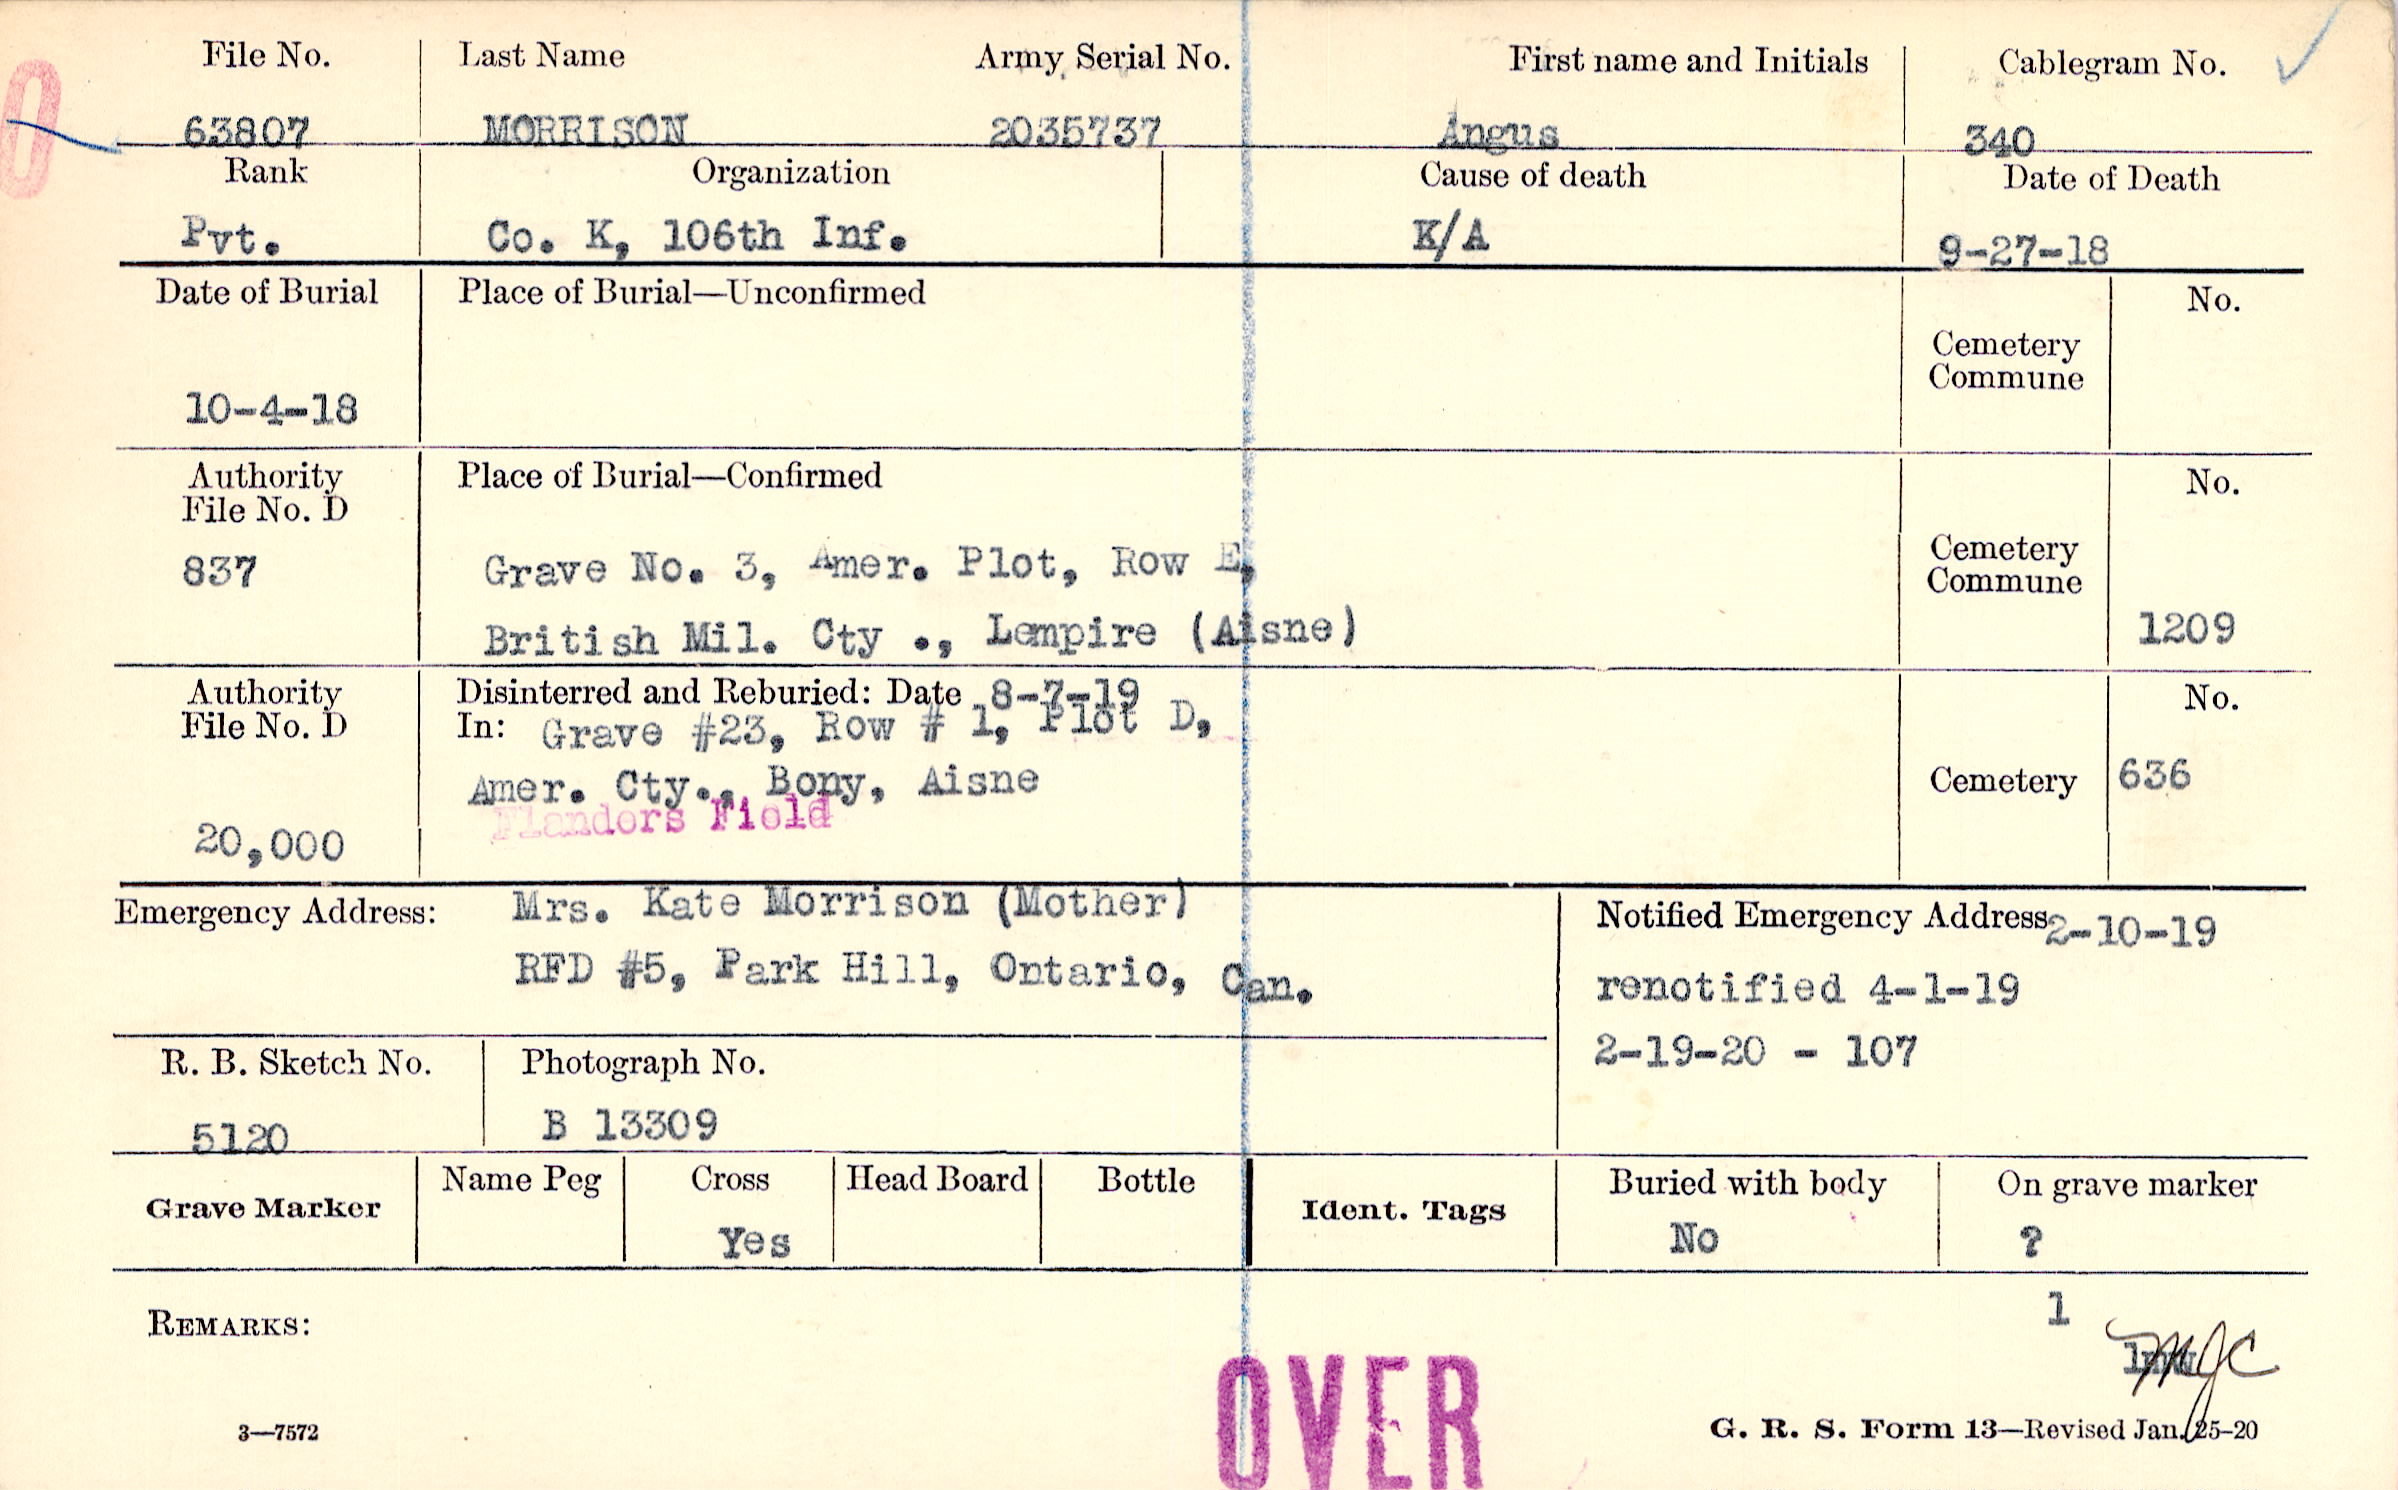 File No. Last Name Army Serial No. First name and Initials Cablegram No.
63807 MORRISON 2035737 Angus 340
Rank Organization Cause of death Date of Death
Pvt. Co. K, 106th Inf. K/A 9-27-18
Date of Burial Place of Burial—Unconfirmed No.
Cemetery
Commune
10-4-18
Authority Place of Burial—Confirmed No.
File No. D
837 Grave No. 3, Amer. Plot, Row E, Cemetery
Commune
British Mil. Cty ., Lempire (Aisne) 1209
Authority Disinterred and Reburied: Date 8-7-19 No.
File No. D In: Grave #23, Row # 1, Plot D,
Amer. Cty., Bony, Aisne Cemetery 636
Flanders Field
20,000
Emergency Address: Mrs. Kate Morrison (Mother) Notified Emergency Address 2-10-19
RFD #5, Park Hill, Ontario, Can. renotified 4-1-19
2-19-20 - 107
R. B. Sketch No. Photograph No.
5120 B 13309
Grave Marker Name Peg Cross Head Board Bottle Ident. Tags Buried with body On grave marker
Yes No ?
REMARKS: 1
MJC
OVER
3—7572 G. R. S. Form 13—Revised Jan. 25-20